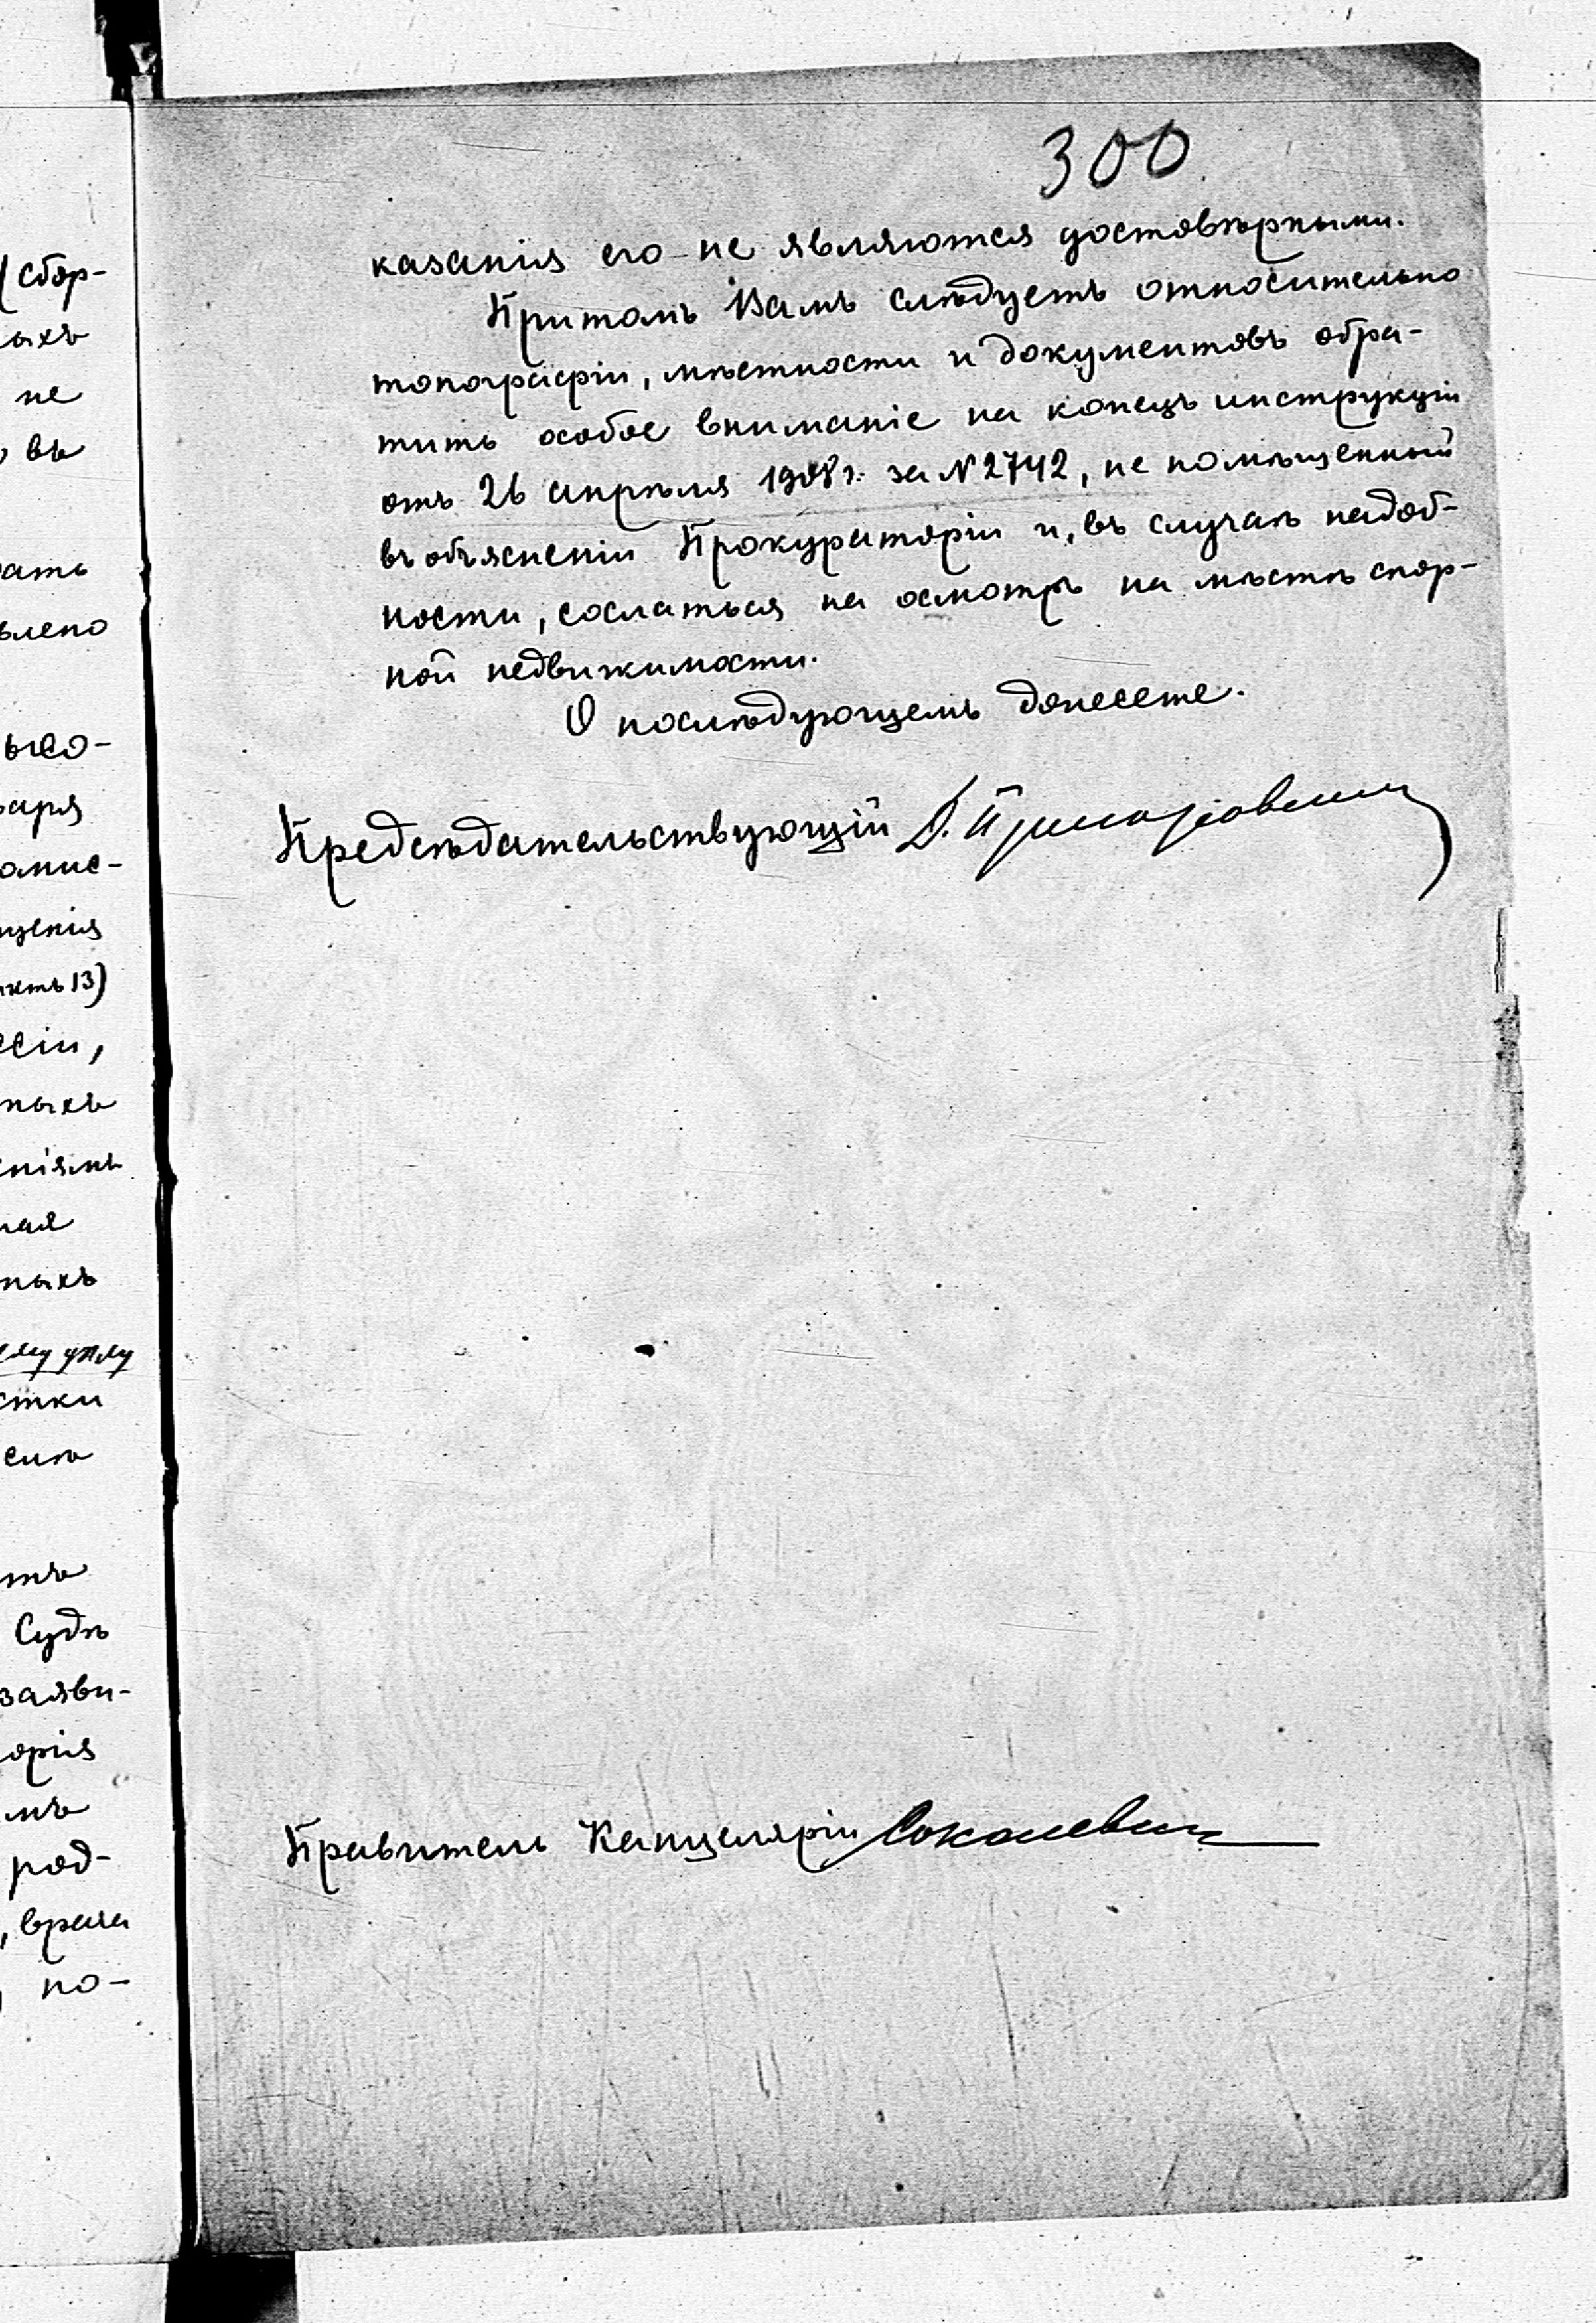 300
казанія его не являются достовѣрными.
Притомъ Вамъ слѣдуетъ относительно
топографіи, мѣстности и документовъ обра-
тить особое вниманіе на конецъ инструкціи
отъ 26 апрѣля 1908 г. за N 2742, не помѣщенный
въ объясненіи Прокураторіи и, въ случаѣ надоб-
ности, сослаться на осмотръ на мѣстѣ спор-
ной недвижимости.
О послѣдующемъ донесете.
Предсѣдательствующій
Правитель Канцеляріи
(сбор-
ыхъ
не
въ
ать
влено
ысо-
аря
омис-
щенія
нктъ 13)
ссіи,
ныхъ
еніямъ
ная
ныхъ
стки
силѣ
тъ
Судѣ
заяви-
орія
мъ
род-
, врача
по-